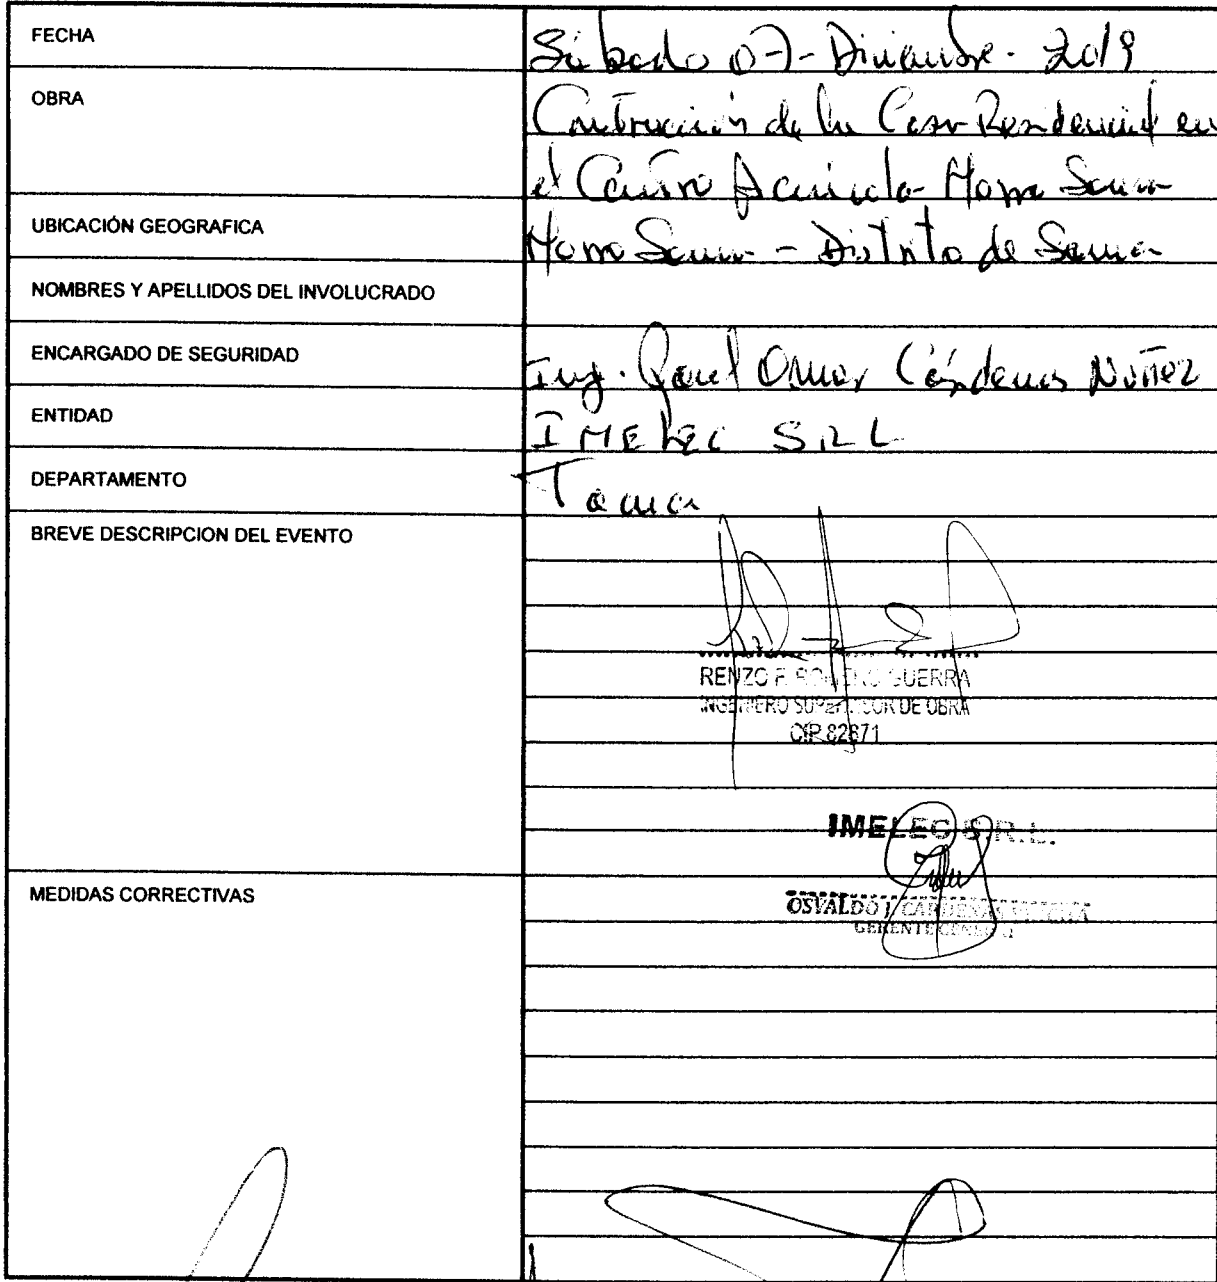 FECHA
Sábado 07-Diciembre-2019
OBRA
Contrucción de la Casa Residencial en
el Centro Acuicola Morro Sama
UBICACIÓN GEOGRAFICA
Morro Sama - Distrito de Sama
NOMBRES Y APELLIDOS DEL INVOLUCRADO
ENCARGADO DE SEGURIDAD
Ing. Omar Cárdenas Núñez
ENTIDAD
IMELEC SRL
DEPARTAMENTO
Tacna
BREVE DESCRIPCION DEL EVENTO
RENZO F. GUERRA
INGENIERO SUPERVISOR DE OBRA
CIP 82871
IMELEC S.R.L.
MEDIDAS CORRECTIVAS
OSVALDO J. CARDENAS
GERENTE GENERAL